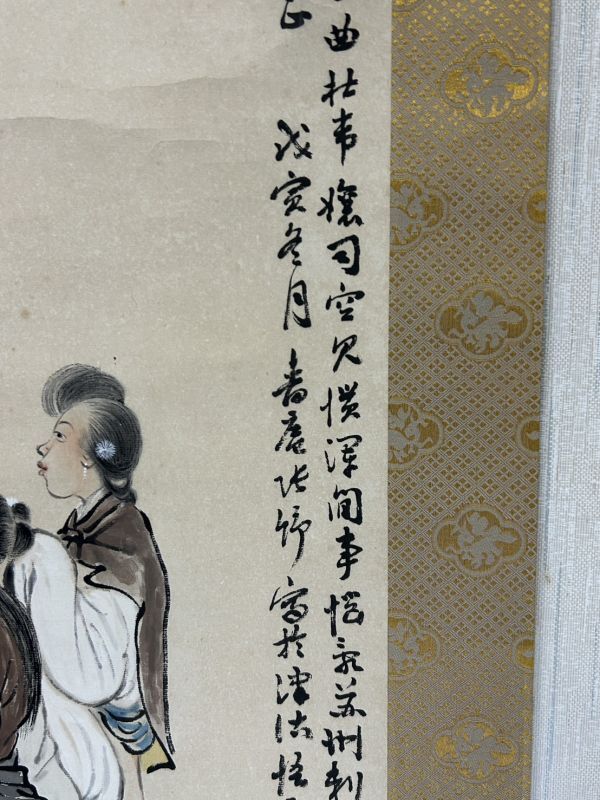 曲杜韦娘司空见惯浑闲事恼乱苏州刺
正
戊寅冬月 写于津沽